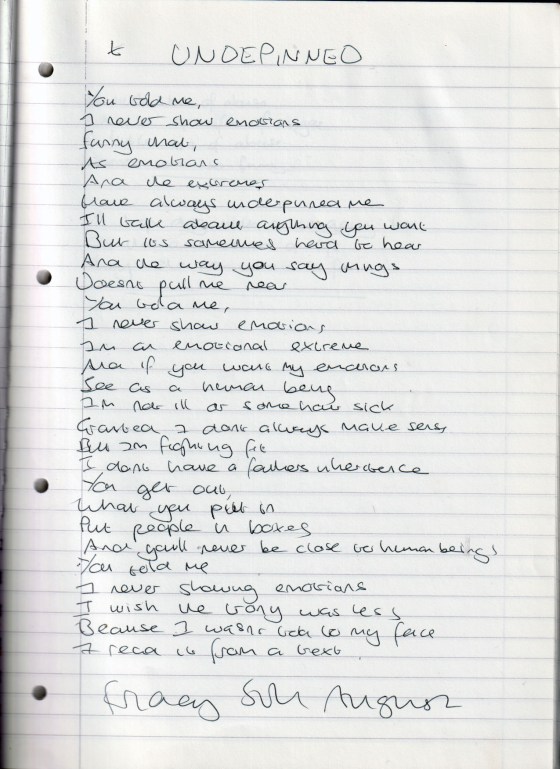 UNDEPINNED
You told me,
I never show emotions
funny that,
As emotions
And the extremes
Have always underpinned me
I'll talk about anything you want
But its sometimes hard to hear
And the way you say things
Doesnt pull me near
You told me,
I never show emotions
Im an emotional extreme
And if you want my emotions
See as a human being
Im not ill or somehow sick
Granted I dont always make sense
But Im fighting fit
I dont have a fathers inheritence
You get out,
What you put in
Put people in boxes
And youll never be close to human beings
You told me
I never showing emotions
I wish the irony was less
Because I wasnt told to my face
I read it from a text
Friday 5th August